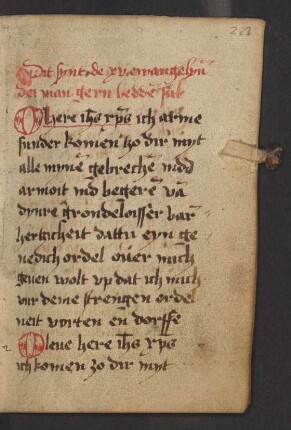 Dat synt de xv
der man gern
O here ihs xps ich arme
sunder komen tzo dir myt
alle mynē gebrechē vnd
armoit vnd begere vā
dynre grondeloisser barm
hertzicheit dattu eyn ge
nedich ordel ouer mich
geuen wolt vp dat ich mich
vur deme strengen ordel
neit vorten en dorffe
O leue here ihs xps
ich komen zo dir myt